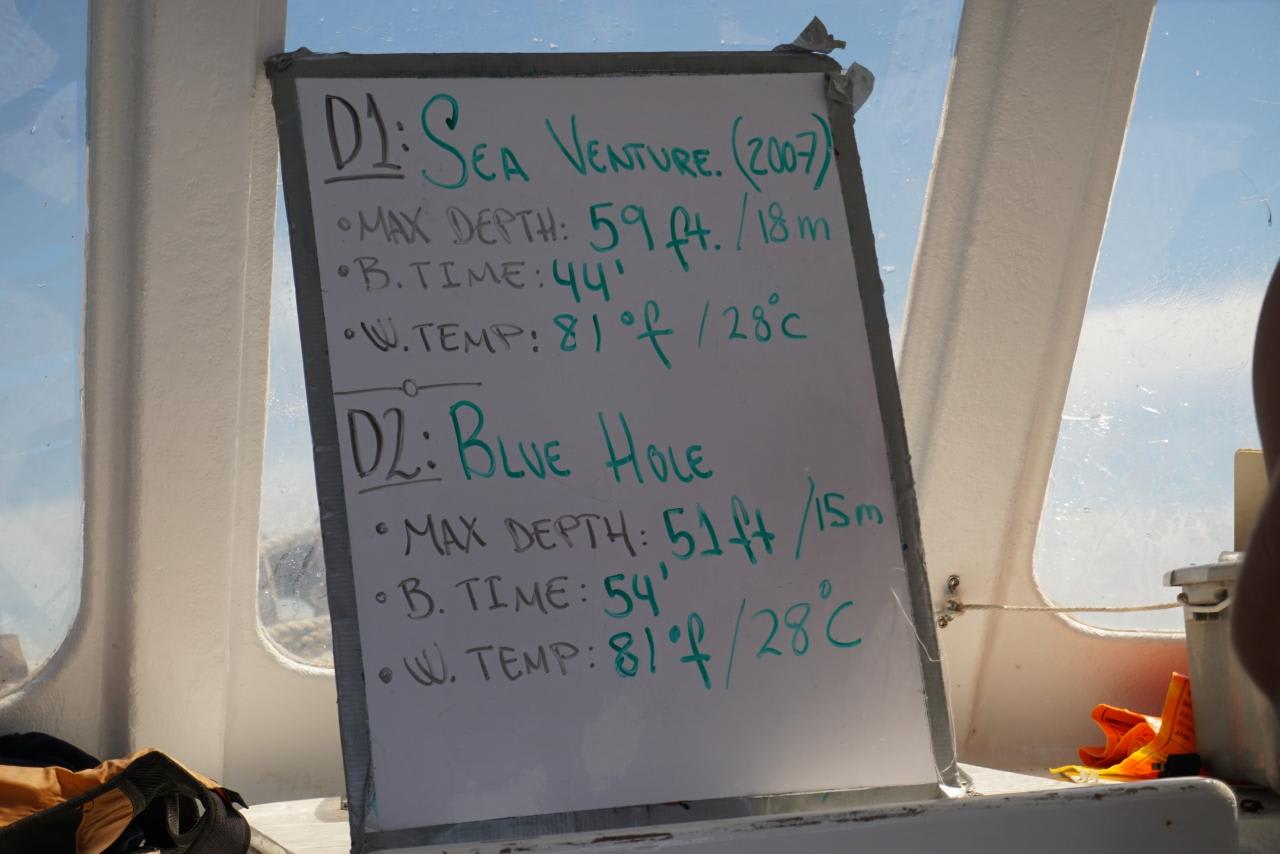 D1: SEA VENTURE. (2007)
• MAX DEPTH: 59 ft. / 18 m
• B. TIME: 44'
• W. TEMP: 81 °f / 28°C
D2: BLUE HOLE
• MAX DEPTH: 51 ft / 15 m
• B. TIME: 54'
• W. TEMP: 81°f / 28°C